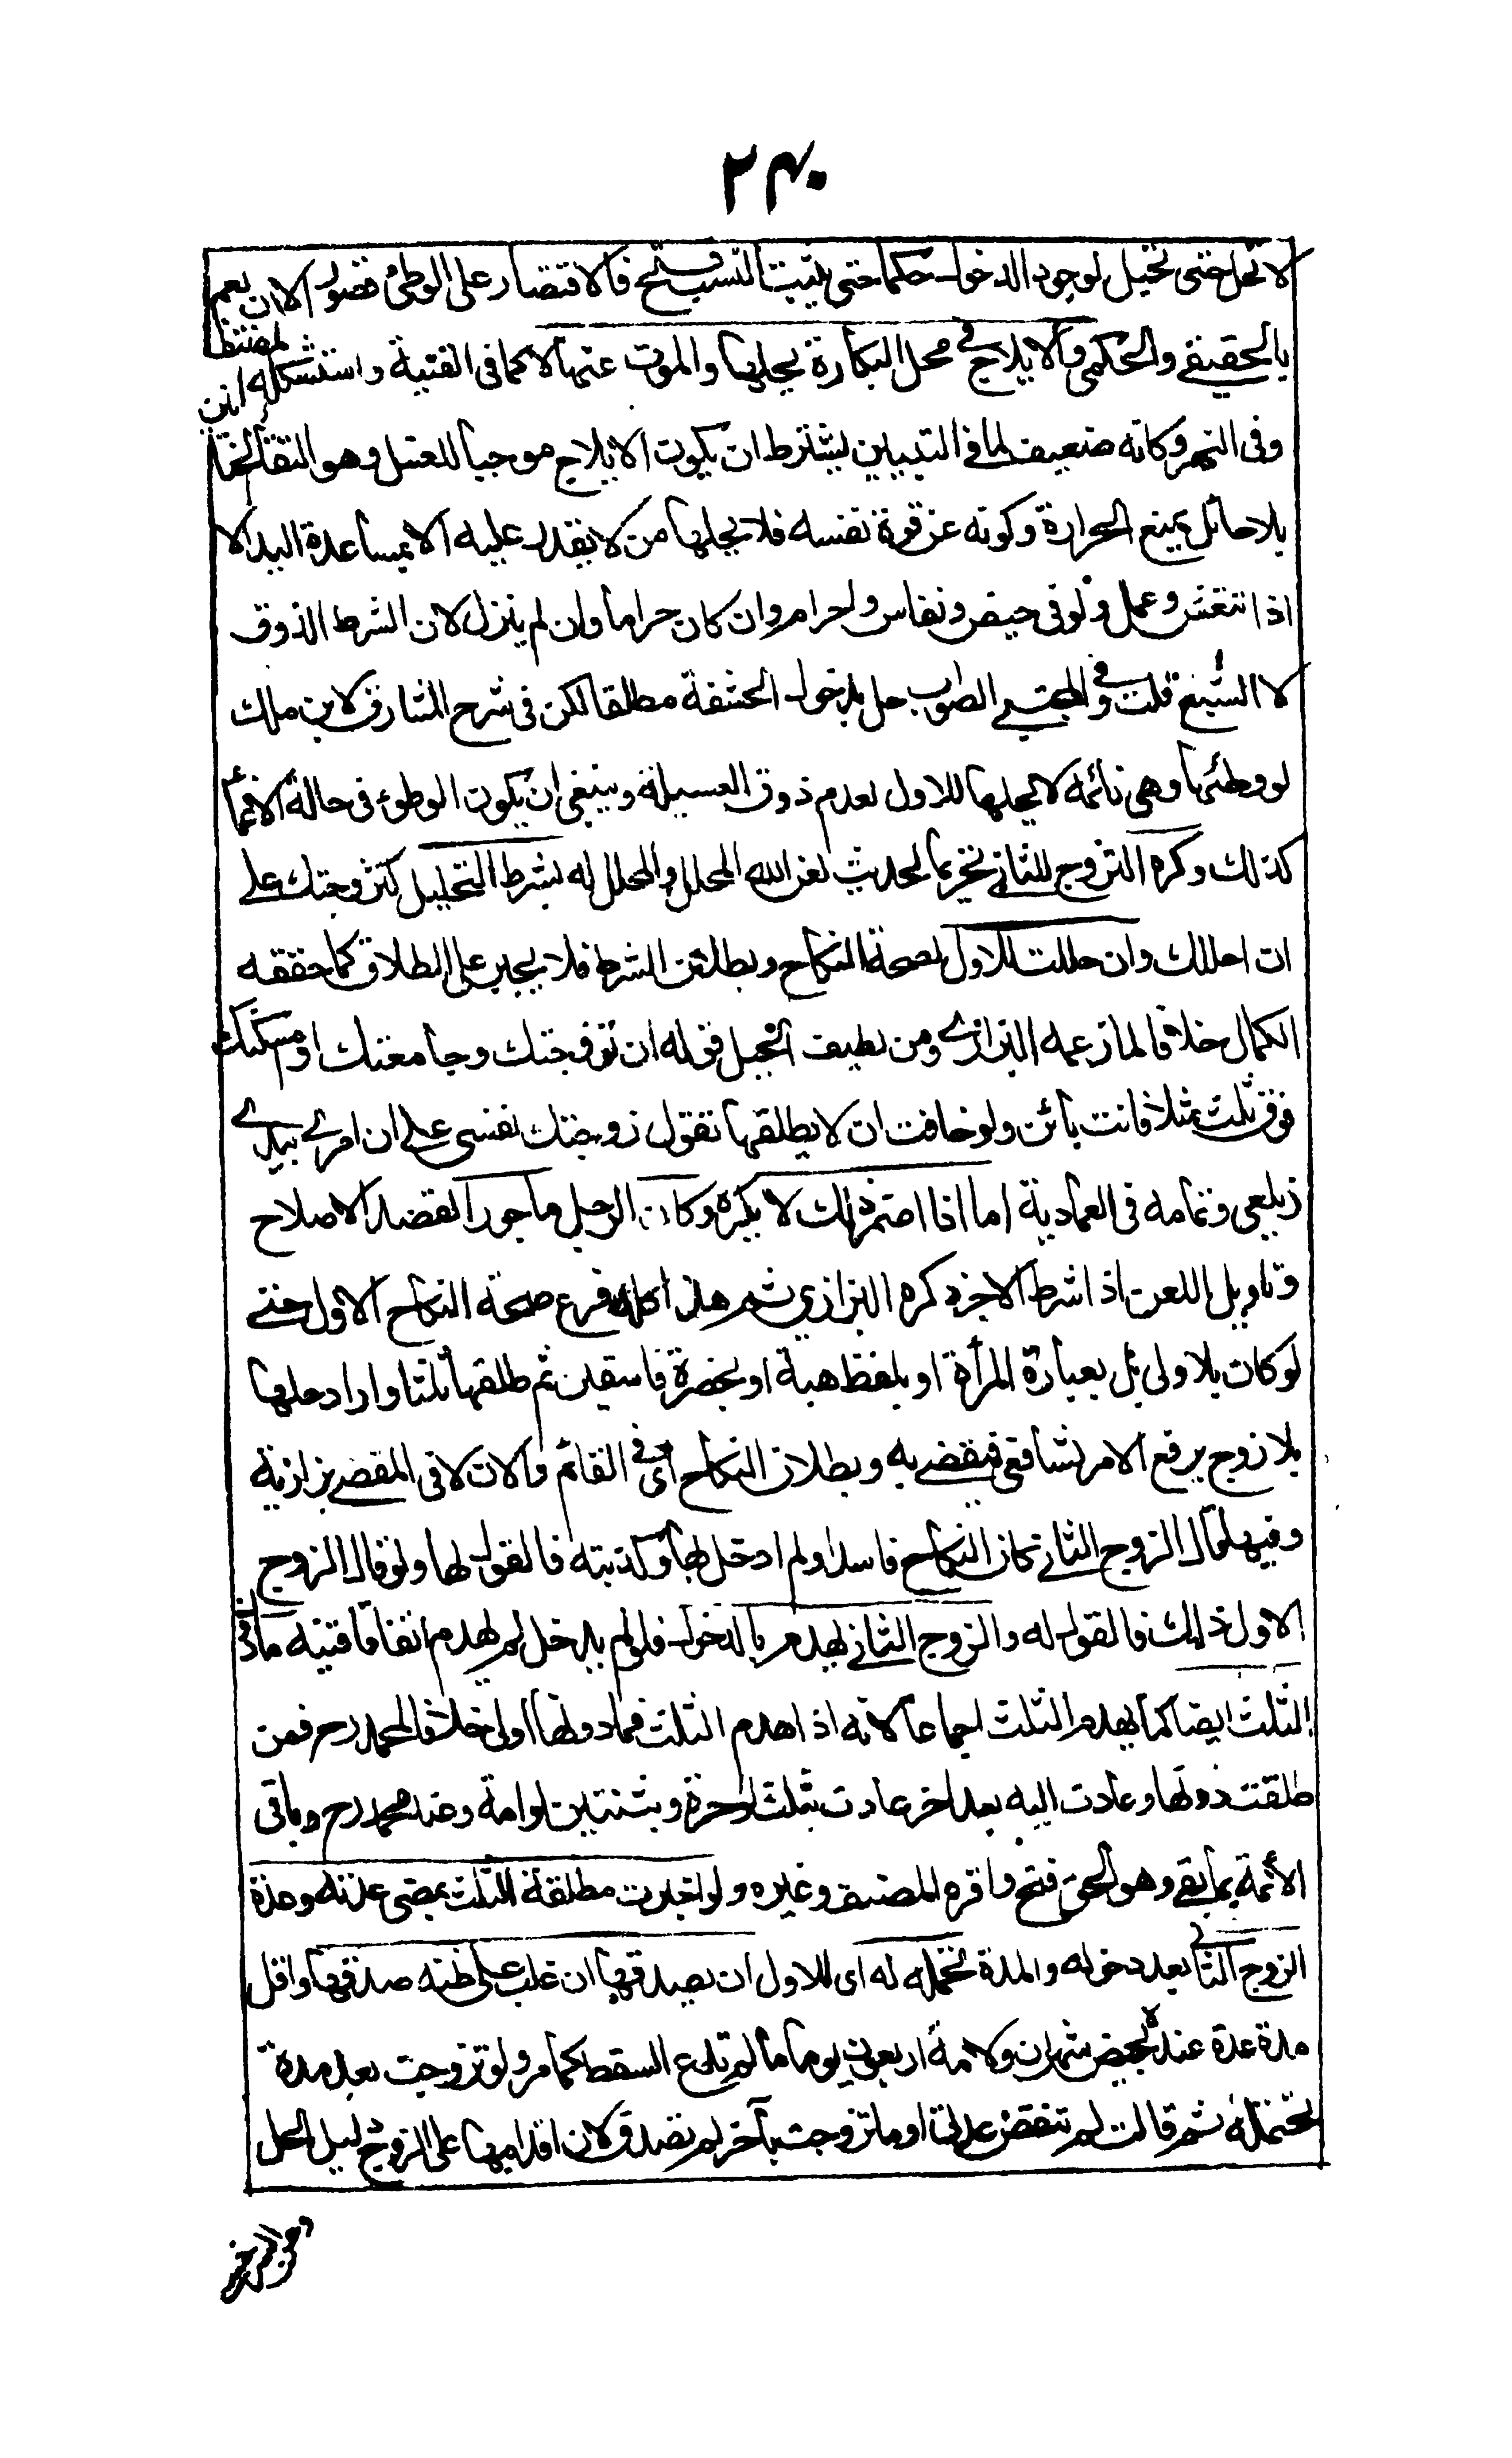 ٢٣٠
لا تحل حتى تحبل لوجود الدخول حكما حتى يثبت النسب فتح فالاقتصار على الوطئ قصور الا ان يعمم
بالحقيقي والحكمي والايلاج في محل البكارة يحلها والموت عنها لا كما في القنية واستشكله المصنف
وفي النهر وكانه ضعيف لما في التبيين يشترط ان يكون الايلاج موجبا للغسل وهو التقاء الختانين
بلا حائل يمنع الحرارة وكونه عن قوة نفسه فلا يحلها من لا يقدر عليه الا بمساعدة اليد الا
اذا انتعش وعمل ولو في حيض ونفاس واحرام وان كان حراما وان لم ينزل لان الشرط الذوق
لا الشبع قلت وفي المجتبى الصواب حل بدخول الحشفة مطلقا لكن في شرح المشارق لابن ملك
لو وطئها وهي نائمة لا يحلها للاول لعدم ذوق العسيلة وينبغي ان يكون الوطوء في حالة الاغماء
كذلك وكره التزوج للثاني تحريما لحديث لعن الله المحلل والمحلل له بشرط التحليل كتزوجتك على
ان احللك وان حللت للاول لصحة النكاح وبطلان الشرط فلا يجبر على الطلاق كما حققه
الكمال خلافا لما زعمه البزازي ومن لطيف الحيل قوله ان تزوجتك وجامعتك او امسكتك
فوق ثلث مثلا فانت بائن ولو خافت ان لا يطلقها تقول زوجتك نفسي على ان امري بيدي
زيلعي وتمامه في العمادية اما اذا اضمر ذلك لا يكره وكان الرجل ماجورا لقصد الاصلاح
وتاويل اللعن اذا شرط الاجر ذكره البزازي ثم هذا كله فرع صحة النكاح الاول حتى
لو كان بلا ولى بل بعبارة المرأة او بلفظ هبة او بحضرة فاسقين ثم طلقها ثلثا واراد حلها
بلا زوج يرفع الامر لشافعي فيقضي به وبطلان النكاح اى في القائم والان لا في المقضي بزازية
وفيها قال الزوج الثاني كان النكاح فاسدا ولم ادخل بها وكذبته فالقول لها ولو قال الزوج
الاول ذلك فالقول له والزوج الثاني يهدم بالدخول فلو لم يدخل لم يهدم اتفاقا قنية ما دون
الثلث ايضا كما يهدم الثلث اجماعا لانه اذا هدم الثلث فما دونها اولى خلافا لمحمد رح فمن
طلقت دونها وعادت اليه بعد اخر عادت بثلث لو حرة وبثنتين لو امة وعند محمد رح وباقي
الأئمة بما بقي وهو الحق فتح واقره المصنف وغيره ولو اخبرت مطلقة الثلث بمضي عدته وعدة
الزوج الثاني بعد دخوله والمدة تحتمله له اى للاول ان يصدقها ان غلب على ظنه صدقها واقل
مدة عدة عنده بحيض شهران ولامة اربعون يوما ما لم تدع السقط كما مر ولو تزوجت بعد مدة
تحتمله ثم قالت لم تنقض عدتي او ما تزوجت بآخر لم تصدق لان اقدامها على التزوج دليل الحل